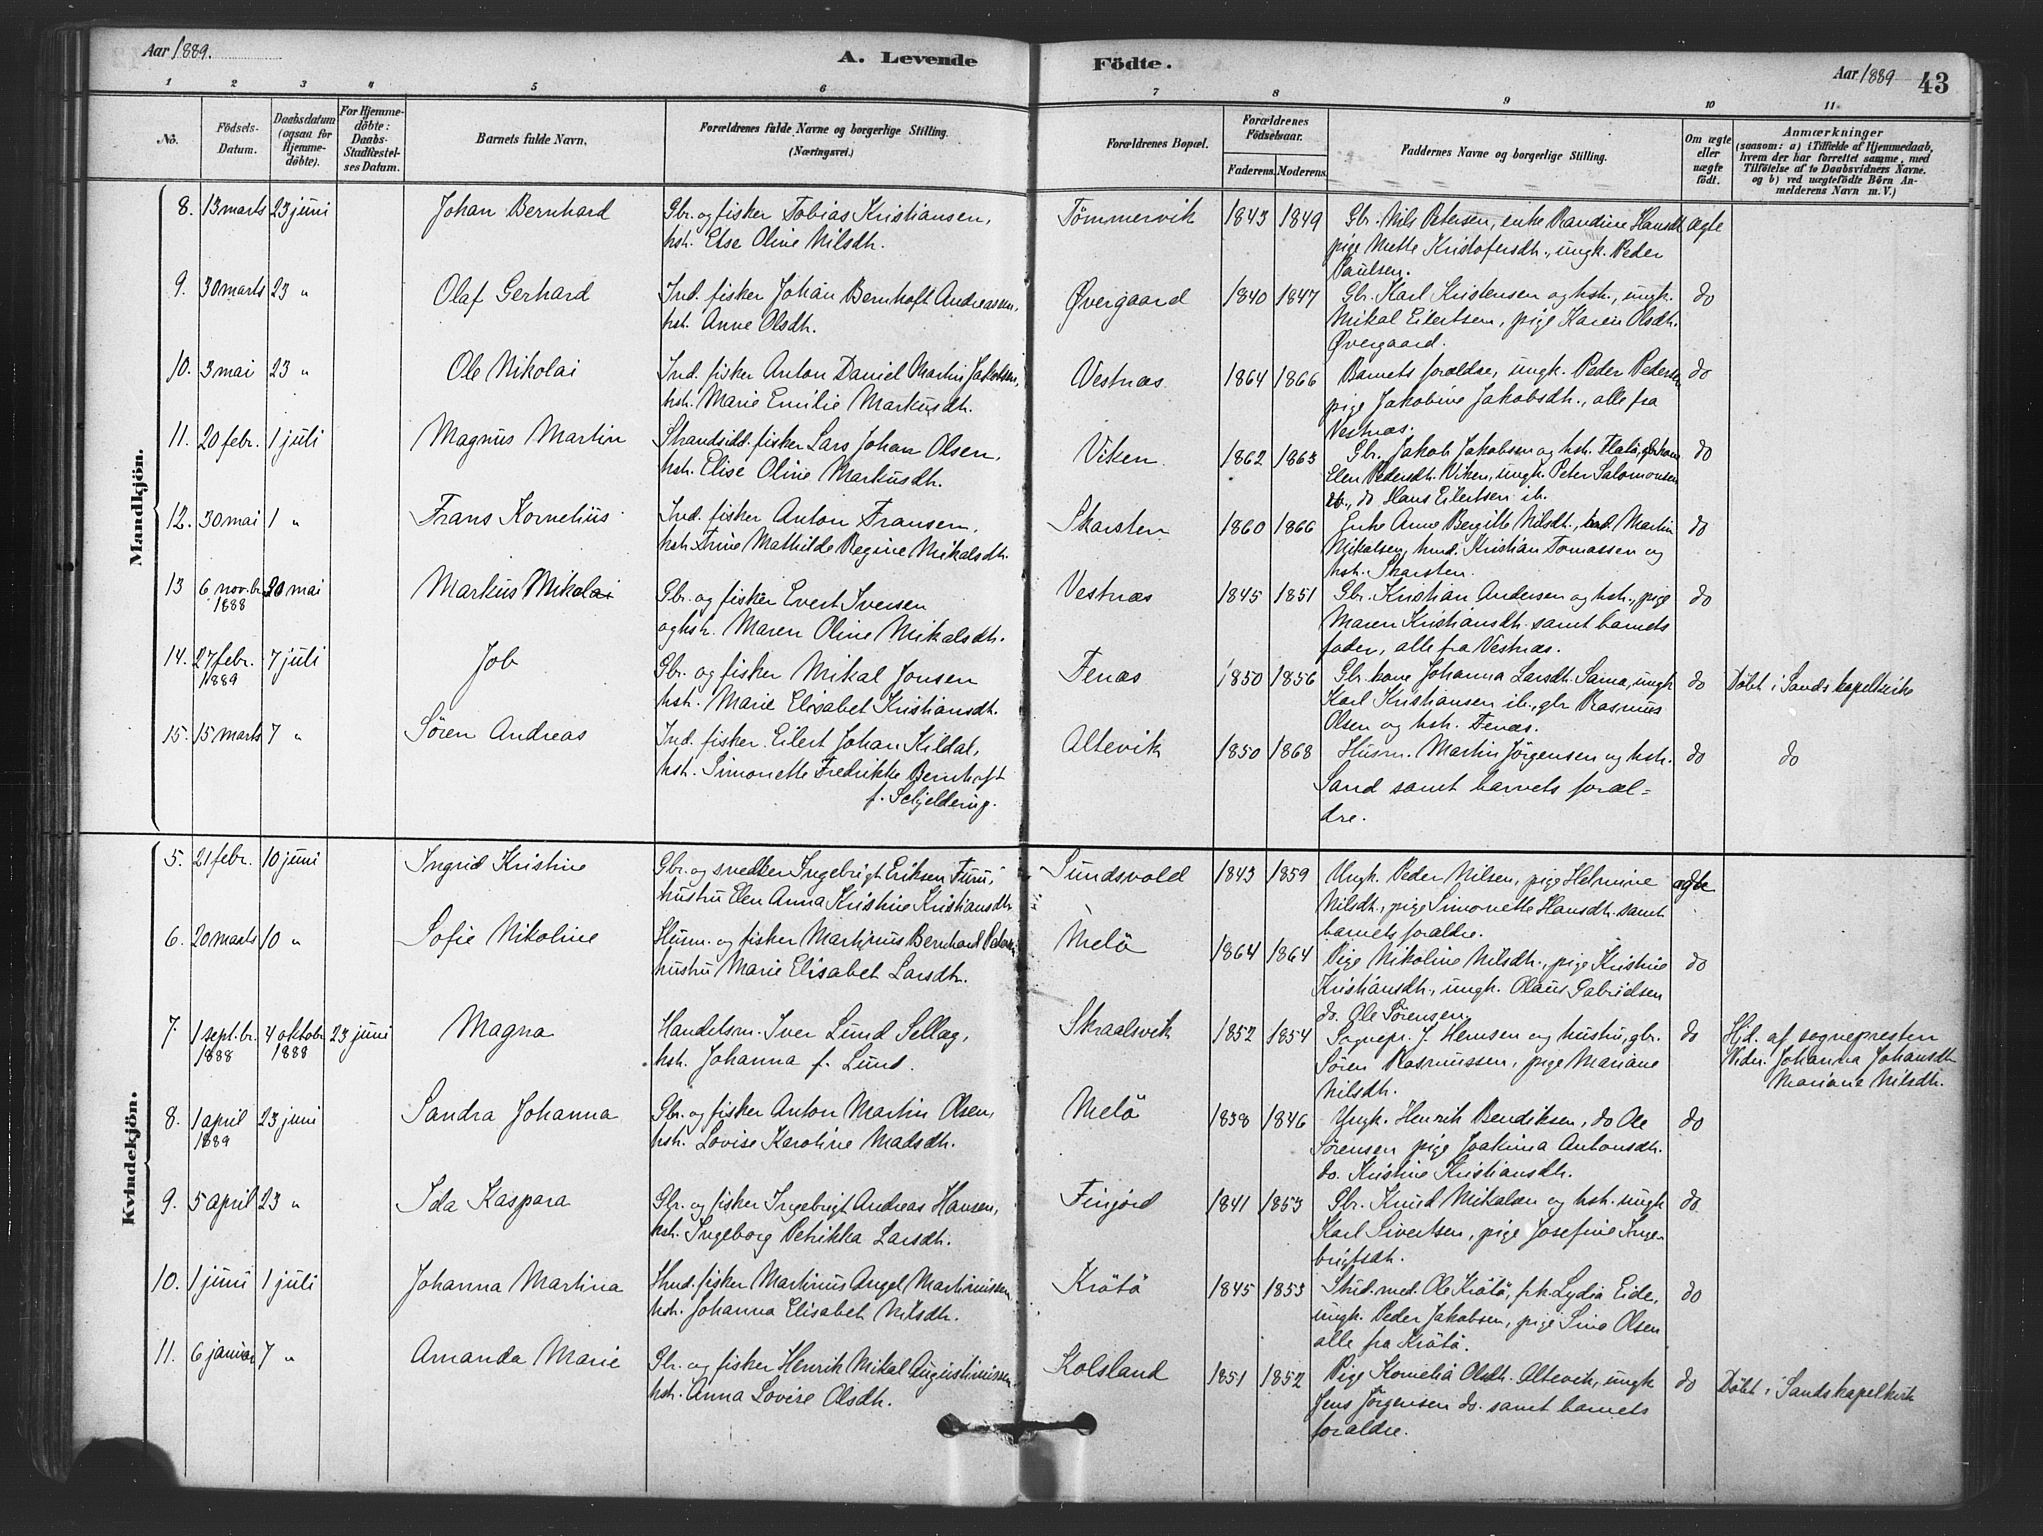 Aar 1889.
A. Levende Födte.
Aar 1889
43
1 2 3 4 5 6 7 8 9 10 11
No.
Födsels-Datum.
Daabsdatum (ogsaa for Hjemme-döbte).
For Hjemme-döbte: Daabs-Stadfæstel-ses Datum.
Barnets fulde Navn.
Forældrenes fulde Navne og borgerlige Stilling.
(Næringsvei.)
Forældrenes Bopæl.
Forældrenes Födselsaar.
Faderens. Moderens.
Faddernes Navne og borgerlige Stilling.
Om ægte eller uægte födt.
Anmærkninger
(saasom: a) i Tilfælde af Hjemmedaab,
hvem der har forrettet samme, med
Tilföielse af to Daabsvidners Navne.
og b) ved uægtefödte Börn An-
melderens Navn m. V.)
Mandkjön.
8. 13 marts 23 juni Johan Bernhard Gbr. og fisker Tobias Kristiansen, Tömmervik 1843 1849 Gbr. Nils Petersen, enke Randine Hansdt. ægte
hst. Else Olive Nilsdh. pige Mette Kristofersdh., ungk. Peder
Paulsen.
9. 30 marts 23 " Olaf Gerhard Ind. fisker Johan Bernhoft Andreassen, Øvergaard 1840 1847 Gbr. Karl Kristensen og hst., ungk. do
hst. Anne Olsdh. Mikal Eilertsen, pige Karen Olsdh.
Øvergaard.
10. 3 mai 23 " Ole Nikolai Ind. fisker Anton Daniel Martin Jakobsen, Vestnæs 1864 1866 Barnets forældre, ungk. Peder Pedersen do
hst. Marie Emilie Markusdh. pige Jakobine Jakobsdh., alle fra
Vestnæs.
11. 20 febr. 1 juli Magnus Martin Strandsidd. fisker Lars Johan Olsen, Viken 1862 1863 Gbr. Jakob Jakobsen og hst. Flatö, do
hst. Elise Oline Markusdh. Elen Pedersdh. Viken, ungk. Peter Salomonsen
ib., do Hans Eilertsen ib.
12. 30 mai 1 " Frans Kornelius Ind. fisker Anton Fransen, Skarsten 1860 1866 Enke Anne Bergitte Nilsdh., Martin do
hst. Trine Mathilde Regine Mikalsdh. Mikalsen, hmd. Kristian Tomassen og
hst. Skarsten.
13 6 novbr. 1888 20 mai Markus Mikolai Gbr. og fisker Evert Iversen Vestnæs 1845 1851 Gbr. Kristian Andersen og hst., pige do
og hst. Maren Oline Mikalsdh. Maren Kristiansdh. samt barnets
fader, alle fra Vestnæs.
14. 27 febr. 1889 7 juli Job Gbr. og fisker Mikal Jonsen Fenæs 1850 1856 Gbr. kone Johanna Larsdh. Sama, ungk do Döbt i Sands kapelkirke
hst. Marie Elisabet Kristiansdh. Karl Kristiansen ib., gbr Rasmus
Olsen og hst. Fenæs.
15. 15 marts 7 " Sören Andreas Ind. fisker Eilert Johan Kildal, Altevik 1850 1868 Husm. Martin Jörgensen og hst. do do
hst. Simonette Fredrikke Bernhoft Sand samt barnets foræl-
f. Schjelderup. dre.
Kvindekjön.
5. 21 febr. 10 juni Ingrid Kristine Gbr. og snedker Ingebrigt Eriksen Furu, Sundsvold 1843 1859 Ungk. Peder Nilsen, pige Helmine ægte
hustru Elen Anna Kristine Kristiansdh. Nilsdh., pige Simonette Hansdh. samt
barnets forældre.
6. 20 marts 10 " Sofie Nikoline Husm. og fisker Martinus Bernhard Pedersen, Melö 1864 1864 Pige Nikoline Nilsdh., pige Kristine do
hustru Marie Elisabet Larsdh. Kristiansdh., ungk. Olaus Gabrielsen
do. Ole Sörensen.
7. 1 septbr. 1888 4 oktobr 1888 23 juni Magna Handelsm. Iver Lund Sellæg, Skraalsvik 1852 1854 Sognepr. J. Hemsen og hustru, gbr. do Hjd. af sognepresten
hst. Johanna f. Lund. Sören Rasmussen, pige Mariane Vidn. Johanna Johansdh
Nilsdh. Mariane Nilsdh.
8. 1 april 1889 23 juni Sandra Johanna Gbr. og fisker Anton Martin Olsen, Melö 1838 1846 Ungk. Henrik Bendiksen, do Ole do
hst. Lovise Karoline Madsdh. Sörensen pige Joakima Antonsdh.
do. Kristine Kristiansdh.
9. 5 april 23 " Ida Kaspara Gbr. og fisker Ingebrigt Andreas Hansen, Finjord 1841 1853 Gbr. Knud Mikalsen og hst. ungk do.
hst. Ingeborg Petrikka Larsdh. Karl Sivertsen, pige Josefine Inge-
brigtsdh.
10. 1 juni 1 juli Johanna Martina Hmd. fisker Martinus Angel Martinussen Krötö 1845 1853 Stud. med. Ole Krötö, frk. Lydia Eide, do
hst. Johanna Elisabet Nilsdh. ungk. Peder Jakobsen, pige Sina Olsen
alle fra Krötö.
11. 6 januar 7 " Amanda Marie Gbr. og fisker Henrik Mikal Augustinussen Kolsland 1851 1852 Pige Kornelia Olsdh. Altevik, ungk do Döbt i Sands kapelkirk
hst. Anna Lovise Olsdh. Jens Jörgensen do. samt barnets
forældre.